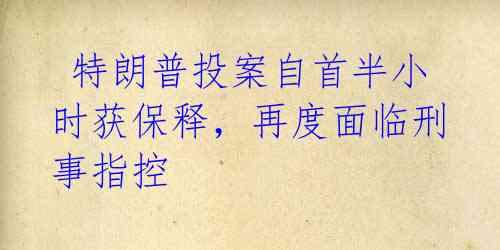 特朗普投案自首半小
时获保释，再度面临刑
事指控